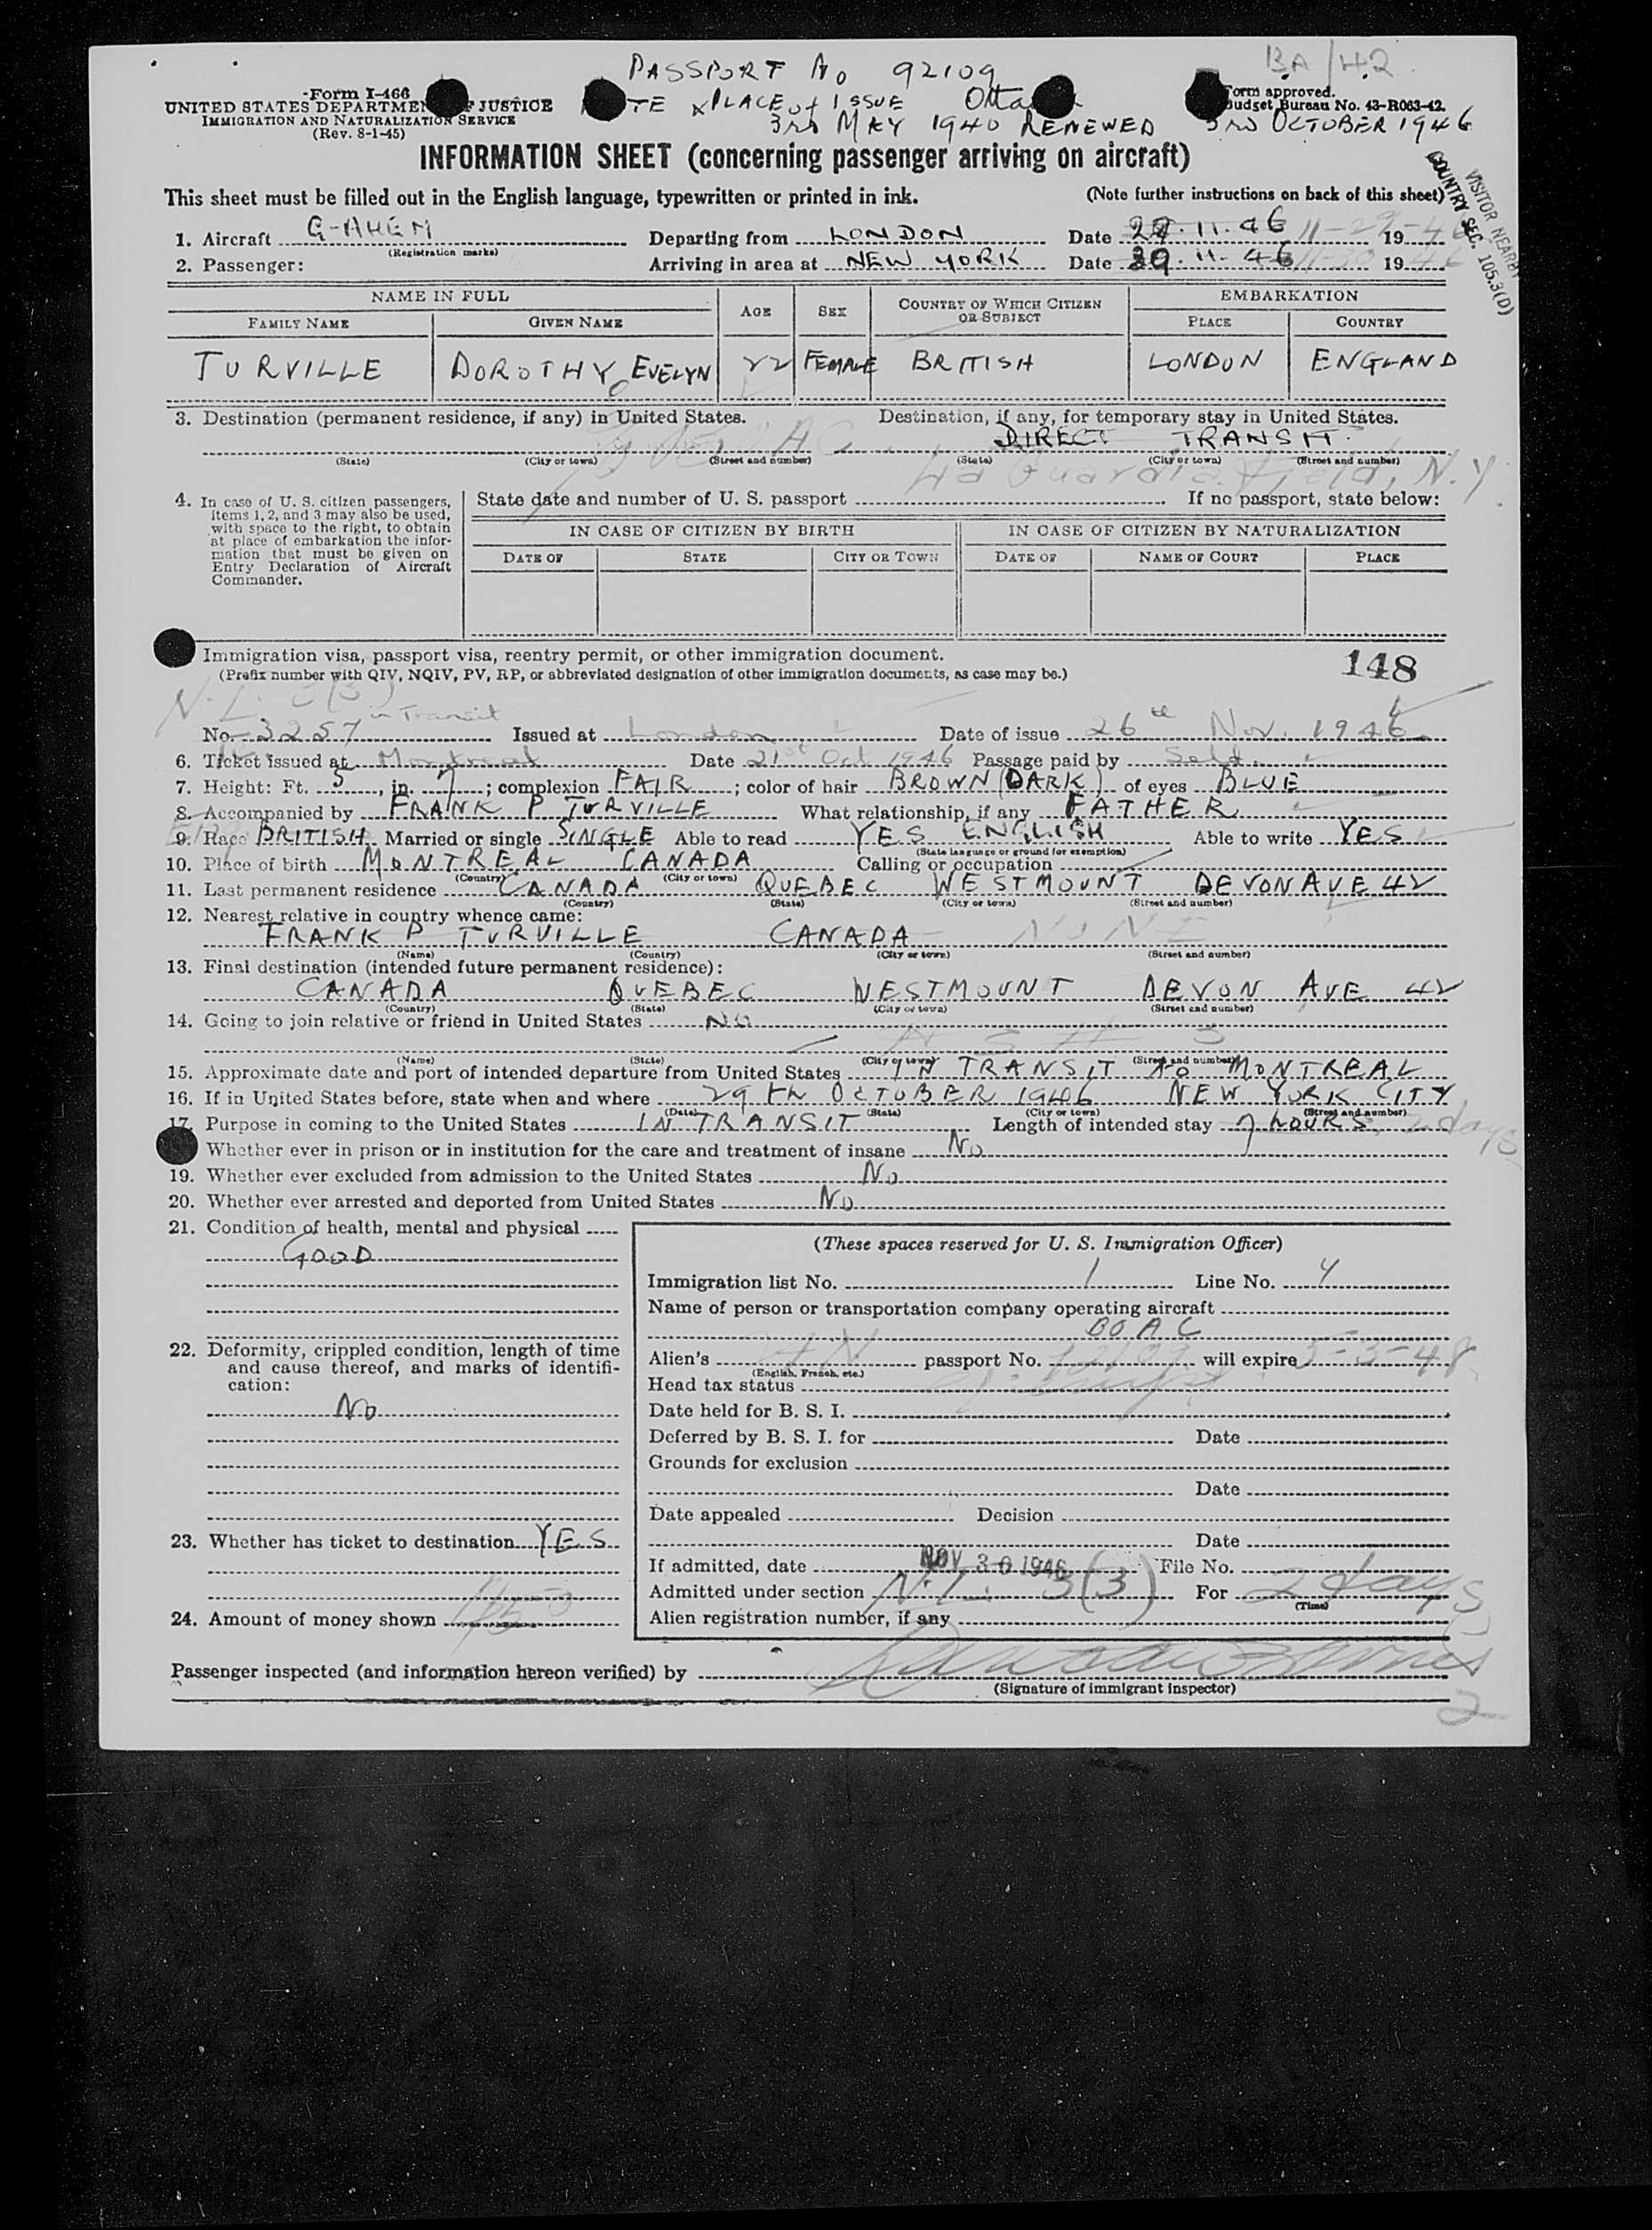 PASSPORT No 92109
BA/42
Form I-466
UNITED STATES DEPARTMENT OF JUSTICE
IMMIGRATION AND NATURALIZATION SERVICE
(Rev. 8-1-45)
PLACE of ISSUE Ottawa
3rd MAY 1940 RENEWED 3rd OCTOBER 1946
Form approved.
Budget Bureau No. 43-R063-42.
INFORMATION SHEET (concerning passenger arriving on aircraft)
This sheet must be filled out in the English language, typewritten or printed in ink. (Note further instructions on back of this sheet)
VISITOR NEARBY
COUNTRY SEC. 105.3(D)
1. Aircraft G-AHEM Departing from LONDON Date 29.11.46 11-29-46 19
(Registration marks)
2. Passenger: Arriving in area at NEW YORK Date 30.11.46 11-30 1946
NAME IN FULL AGE SEX COUNTRY OF WHICH CITIZEN OR SUBJECT EMBARKATION
FAMILY NAME GIVEN NAME PLACE COUNTRY
TURVILLE DOROTHY EVELYN 22 FEMALE BRITISH LONDON ENGLAND
3. Destination (permanent residence, if any) in United States. Destination, if any, for temporary stay in United States.
DIRECT TRANSIT
(State) (City or town) (Street and number) (State) (City or town) (Street and number)
La Guardia Field, N.Y.
4. In case of U. S. citizen passengers, items 1, 2, and 3 may also be used, with space to the right, to obtain at place of embarkation the information that must be given on Entry Declaration of Aircraft Commander.
State date and number of U. S. passport If no passport, state below:
IN CASE OF CITIZEN BY BIRTH IN CASE OF CITIZEN BY NATURALIZATION
DATE OF STATE CITY OR TOWN DATE OF NAME OF COURT PLACE
Immigration visa, passport visa, reentry permit, or other immigration document. 148
(Prefix number with QIV, NQIV, PV, RP, or abbreviated designation of other immigration documents, as case may be.)
N.I. 3(3) in Transit
No. 3257 Issued at London Date of issue 26th Nov. 1946
6. Ticket issued at Montreal Date 21st Oct 1946 Passage paid by Self
7. Height: Ft. 5, in. 7; complexion FAIR; color of hair BROWN (DARK) of eyes BLUE
8. Accompanied by FRANK P TURVILLE What relationship, if any FATHER
9. Race BRITISH Married or single SINGLE Able to read YES ENGLISH Able to write YES
(State language or ground for exemption)
10. Place of birth MONTREAL CANADA Calling or occupation
(Country) (City or town)
11. Last permanent residence CANADA QUEBEC WESTMOUNT DEVON AVE 42
(Country) (State) (City or town) (Street and number)
12. Nearest relative in country whence came:
FRANK P TURVILLE CANADA NONE
(Name) (Country) (City or town) (Street and number)
13. Final destination (intended future permanent residence):
CANADA QUEBEC WESTMOUNT DEVON AVE 42
(Country) (State) (City or town) (Street and number)
14. Going to join relative or friend in United States NO
(Name) (State) (City or town) (Street and number)
15. Approximate date and port of intended departure from United States IN TRANSIT TO MONTREAL
16. If in United States before, state when and where 29th OCTOBER 1946 NEW YORK CITY
(Date) (State) (City or town) (Street and number)
17. Purpose in coming to the United States IN TRANSIT Length of intended stay 7 HOURS 2 days
Whether ever in prison or in institution for the care and treatment of insane No
19. Whether ever excluded from admission to the United States No
20. Whether ever arrested and deported from United States No
21. Condition of health, mental and physical
GOOD
22. Deformity, crippled condition, length of time and cause thereof, and marks of identification:
No
23. Whether has ticket to destination YES
24. Amount of money shown
(These spaces reserved for U. S. Immigration Officer)
Immigration list No. 1 Line No. 4
Name of person or transportation company operating aircraft
BOAC
Alien's passport No. 92109 will expire 5-3-48
(English, French, etc.)
Head tax status
Date held for B. S. I.
Deferred by B. S. I. for Date
Grounds for exclusion
Date
Date appealed Decision
Date
If admitted, date NOV 30 1946 File No.
Admitted under section N.I. 3(3) For 2 days
(Time)
Alien registration number, if any
Passenger inspected (and information hereon verified) by
(Signature of immigrant inspector)
2